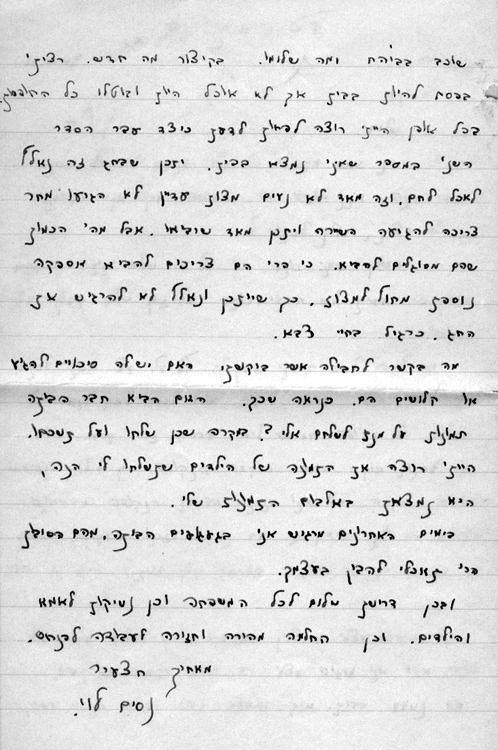 שוכב בביה״ח ומה שלומו. בקיצור מה חדש. רציתי
בפסח להיות בבית אך לא אוכל היות ובוטלו כל החופשות
בכל אופן הייתי רוצה לפחות לדעת כיצד עבר הסדר
השני במספר שאיני נמצא בבית. יתכן שבחג זה נאלץ
לאכל לחם, וזה מאד לא נעים מצות עדיין לא הגיעו מחר
צריכה להגיע השיירה ויתכן מאד שיביאו. אבל מהי הכמות
שהם מסוגלים להביא. כי הרי הם צריכים להביא אספקה
נוספת מחוץ למצות. כך שייתכן ונאלץ לא להרגיש את
החג. כרגיל בחיי צבא.
מה בקשר לחבילה אשר ביקשתי האם יש לה סיכויים להגיע
או קלושים הם. כנראה שכך. האם הביא חבר הביתה
תמונות על מנת לשלחם אלי? במקרה שכן שלחו ועל תשכחו.
הייתי רוצה את התמונה של הילדים שתשלחו לי הנה,
היא נמצאת באלבום התמונות שלי.
בימים האחרונים מרגיש אני בגעגועים הביתה, מהם הסיבות
הרי תאכלי להבין בעצמך.
ובכן דרישת שלום לכל המשפחה וכן נשיקות לאמא
והילדים. וכן החלמה מהירה וחזירה לעבודה לפנחס.
מאחיך הצעיר
נסים לוי.